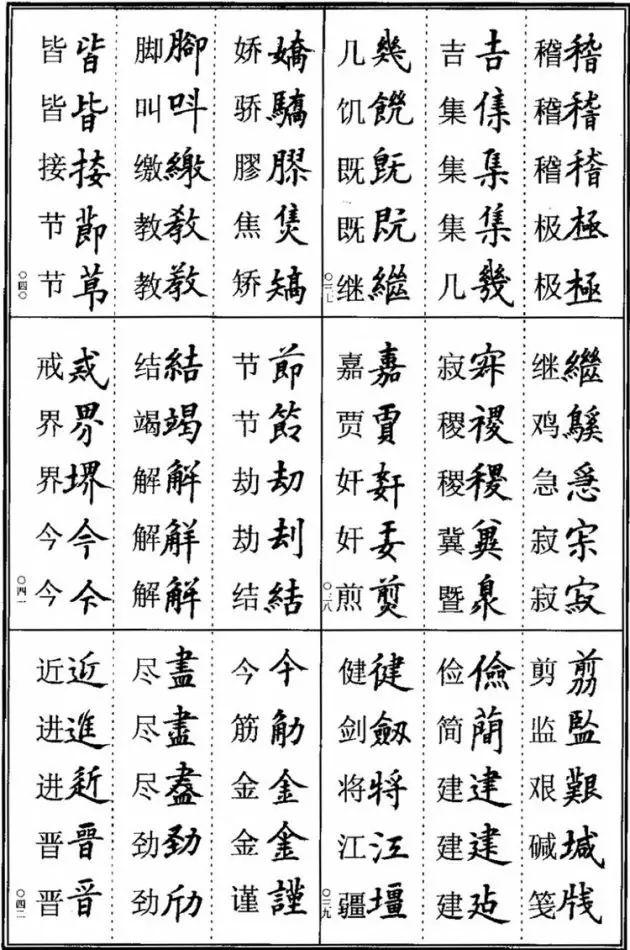 稽稽
稽稽
稽稽
极極
极極
吉吉
集集
集集
集集
几幾
几幾
饥饑
既既
既既
继繼
〇三七
继繼
鸡
急急
寂
寂寂
寂
稷稷
稷稷
冀冀
暨
嘉嘉
贾賈
奸姧
奸
煎煎
〇三八
剪剪
监監
艰艱
碱堿
笺牋
俭儉
简簡
建建
建建
建
健健
剑劔
将将
江江
疆壃
〇三九
娇嬌
骄驕
膠膠
焦焦
矫矯
脚腳
叫叫
缴繳
教教
教教
皆皆
皆皆
接接
节節
节
〇四〇
节節
节節
劫劫
劫刦
结結
结結
竭竭
解解
解解
解解
戒戒
界界
界堺
今今
今今
〇四一
今今
筋
金金
金金
谨謹
尽盡
尽盡
尽盡
劲勁
劲
近近
进進
进
晋晉
晋晋
〇四二